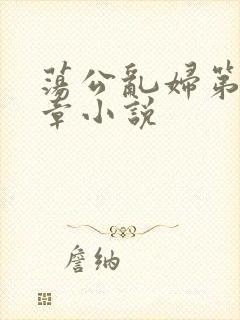 蕩公亂婦第
章小説
詹纳